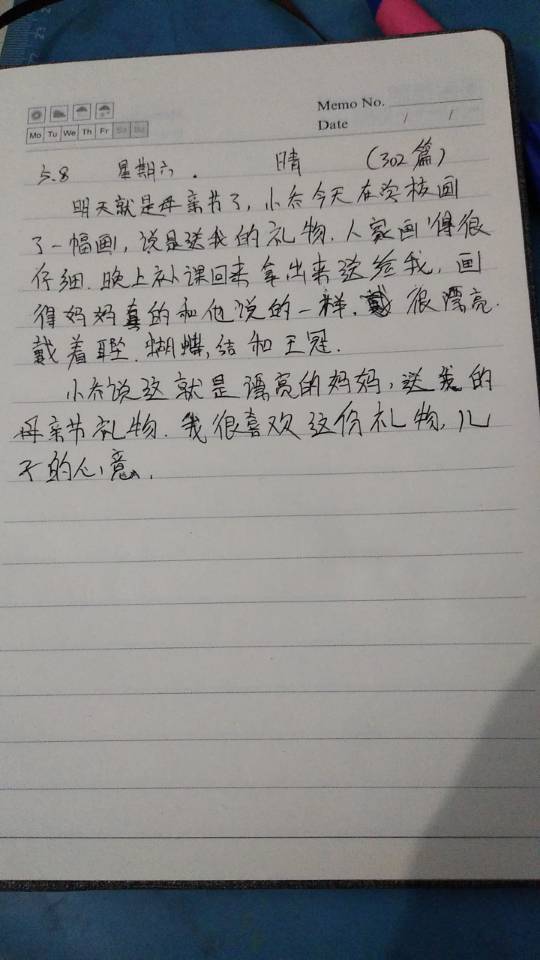 Memo No.
Mo Tu We Th Fr Sa Su
Date / /
5.8 星期六. 晴 (302篇)
明天就是母亲节了,小乔今天在学校画
了一幅画,说是送我的礼物.人家画得很
仔细.晚上补课回来拿出来送给我,画
得妈妈真的和他说的一样.很漂亮.
戴着耳坠.蝴蝶,结和王冠.
小乔说这就是漂亮的妈妈,送我的
母亲节礼物.我很喜欢这份礼物,儿
子的心意,